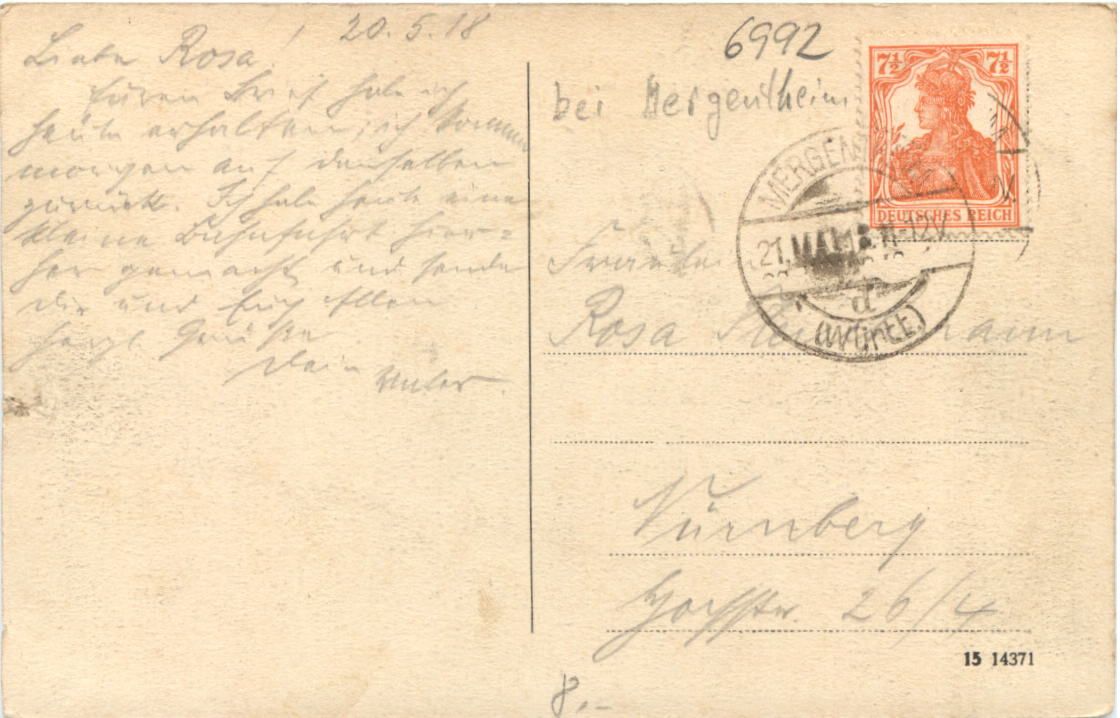 20.5.18
Liebe Rosa!
Euren Brief habe ich
heute erhalten, ich komme
morgen auf denselben
zurück. Ich habe heute eine
kleine Bahnfahrt hier=
her gemacht und sende
Dir und Euch Allen
herzl. Grüße
Dein
6992
bei Mergentheim
7½ 7½
DEUTSCHES REICH
MERGENTHEIM
21. MAI 18. 11-12V.
d
(Württ.)
Fräulein
Rosa
Nürnberg
26/4
15 14371
8.-